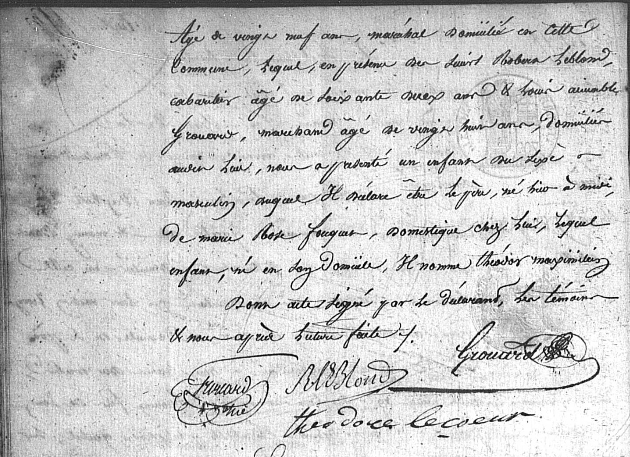 Agé de vingt neuf ans, maréchal Domicilié en cette
Commune, Lequel, en présence des Sieurs Robert Leblond,
cabartier âgé de Soixante deux ans & Louis aimable
Grouard, marchand âgé de vingt huit ans, domiciliés
audit lieu, nous a présenté un enfant du Sexe
masculin, duquel Il déclare être le père, né hier à midi,
de marie Rose fouquet, Domestique chez Lui, Lequel
enfant, né en Son domicile, Il nomme théodor maximilien
Dont acte Signé par le déclarant, Les témoins
& nous après Lecture faite ./.
Grouard
RLeBlond
theodore lecoeur